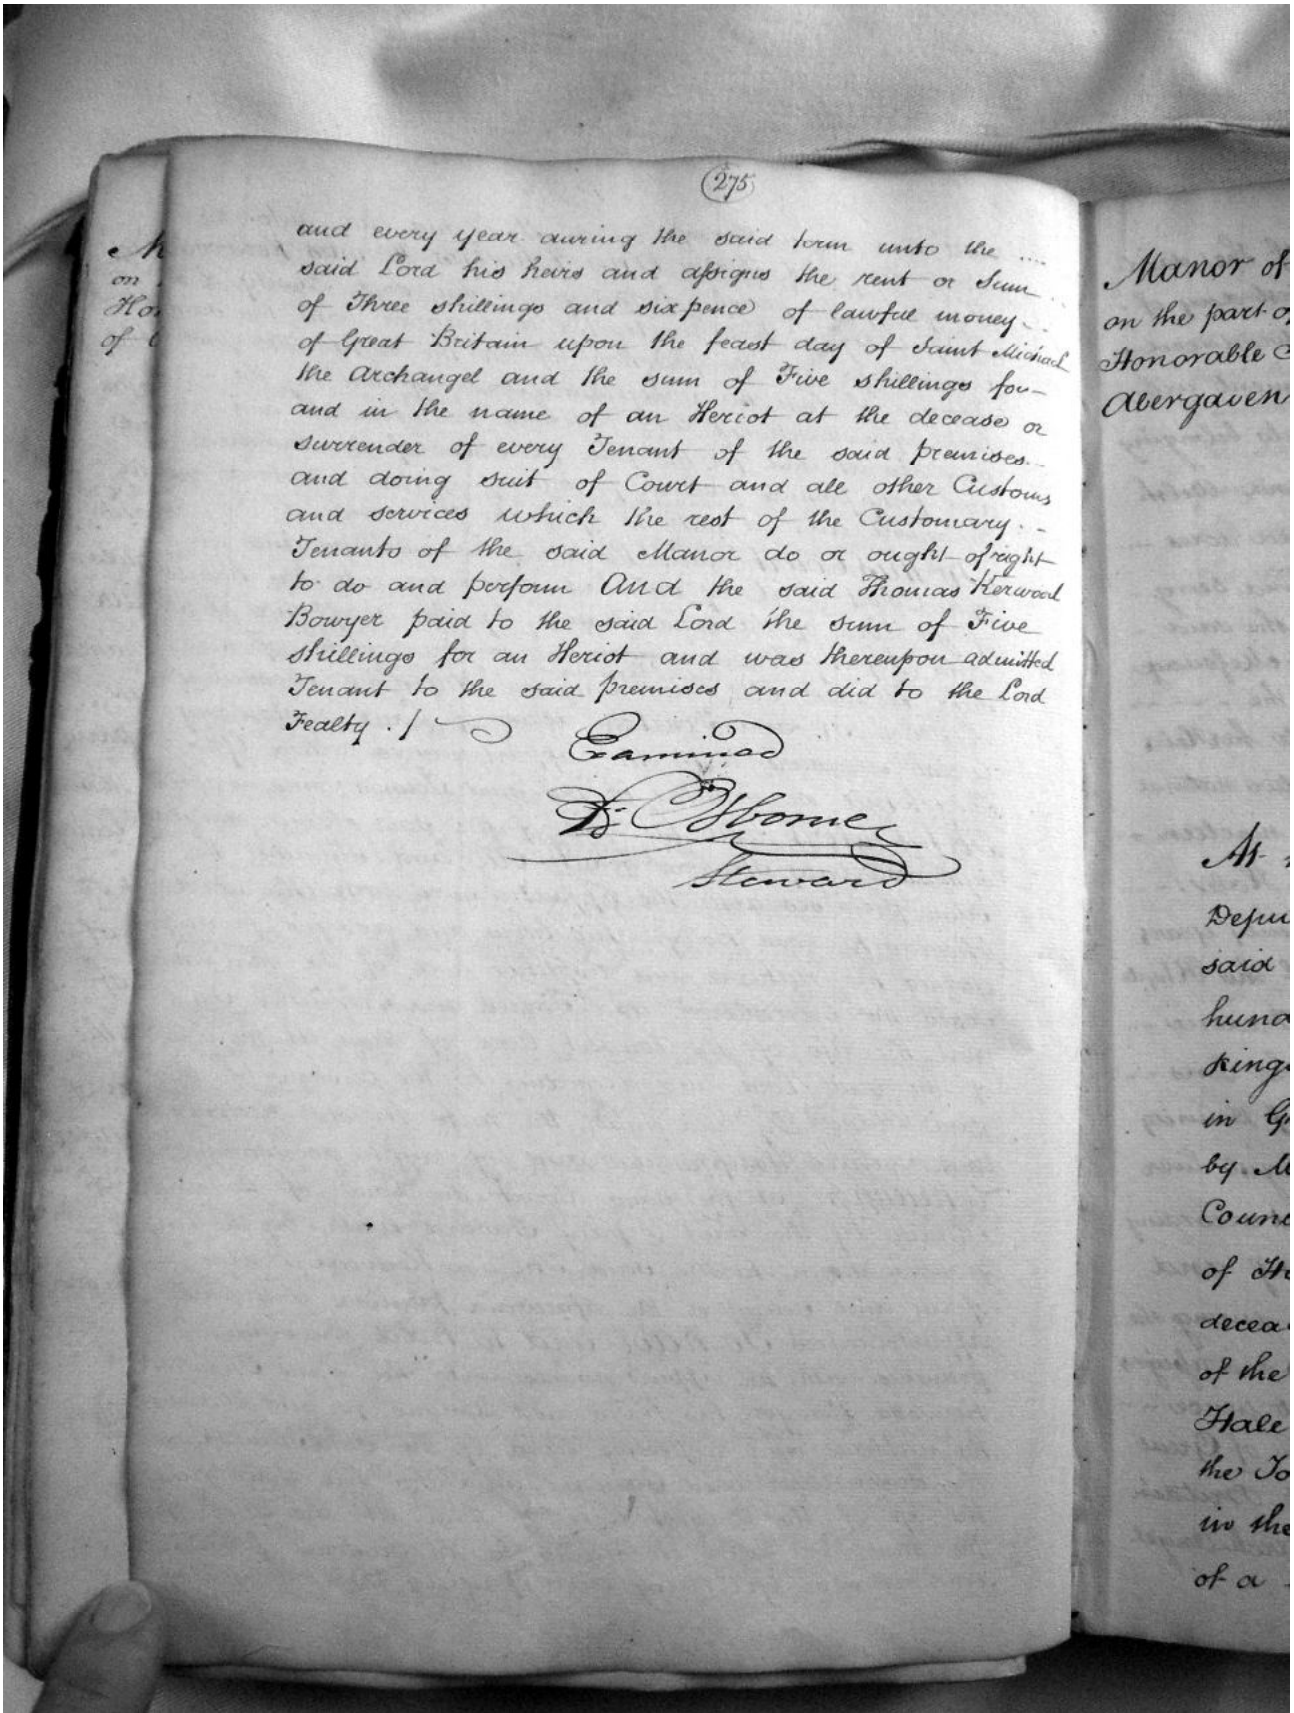 275
and every year during the said term unto the ....
said Lord his heirs and assigns the rent or Sum ..
of Three shillings and sixpence of lawful money ..
of Great Britain upon the feast day of Saint Michael
the Archangel and the sum of Five shillings for –
and in the name of an Heriot at the decease or
surrender of every Tenant of the said premises ..
and doing suit of Court and all other Customs
and services which the rest of the Customary ..
Tenants of the said Manor do or ought of right
to do and perform And the said Thomas Kerwood
Bowyer paid to the said Lord the sum of Five
shillings for an Heriot and was thereupon admitted
Tenant to the said premises and did to the Lord
Fealty . /
Examined
Osborne
Steward
on
Ho
of
Manor of
on the part of
Honorable
Abergaven
At
Depu
said
hund
Kings
in G
by M
Counc
of H
decea
of the
Hale
the To
in the
of a